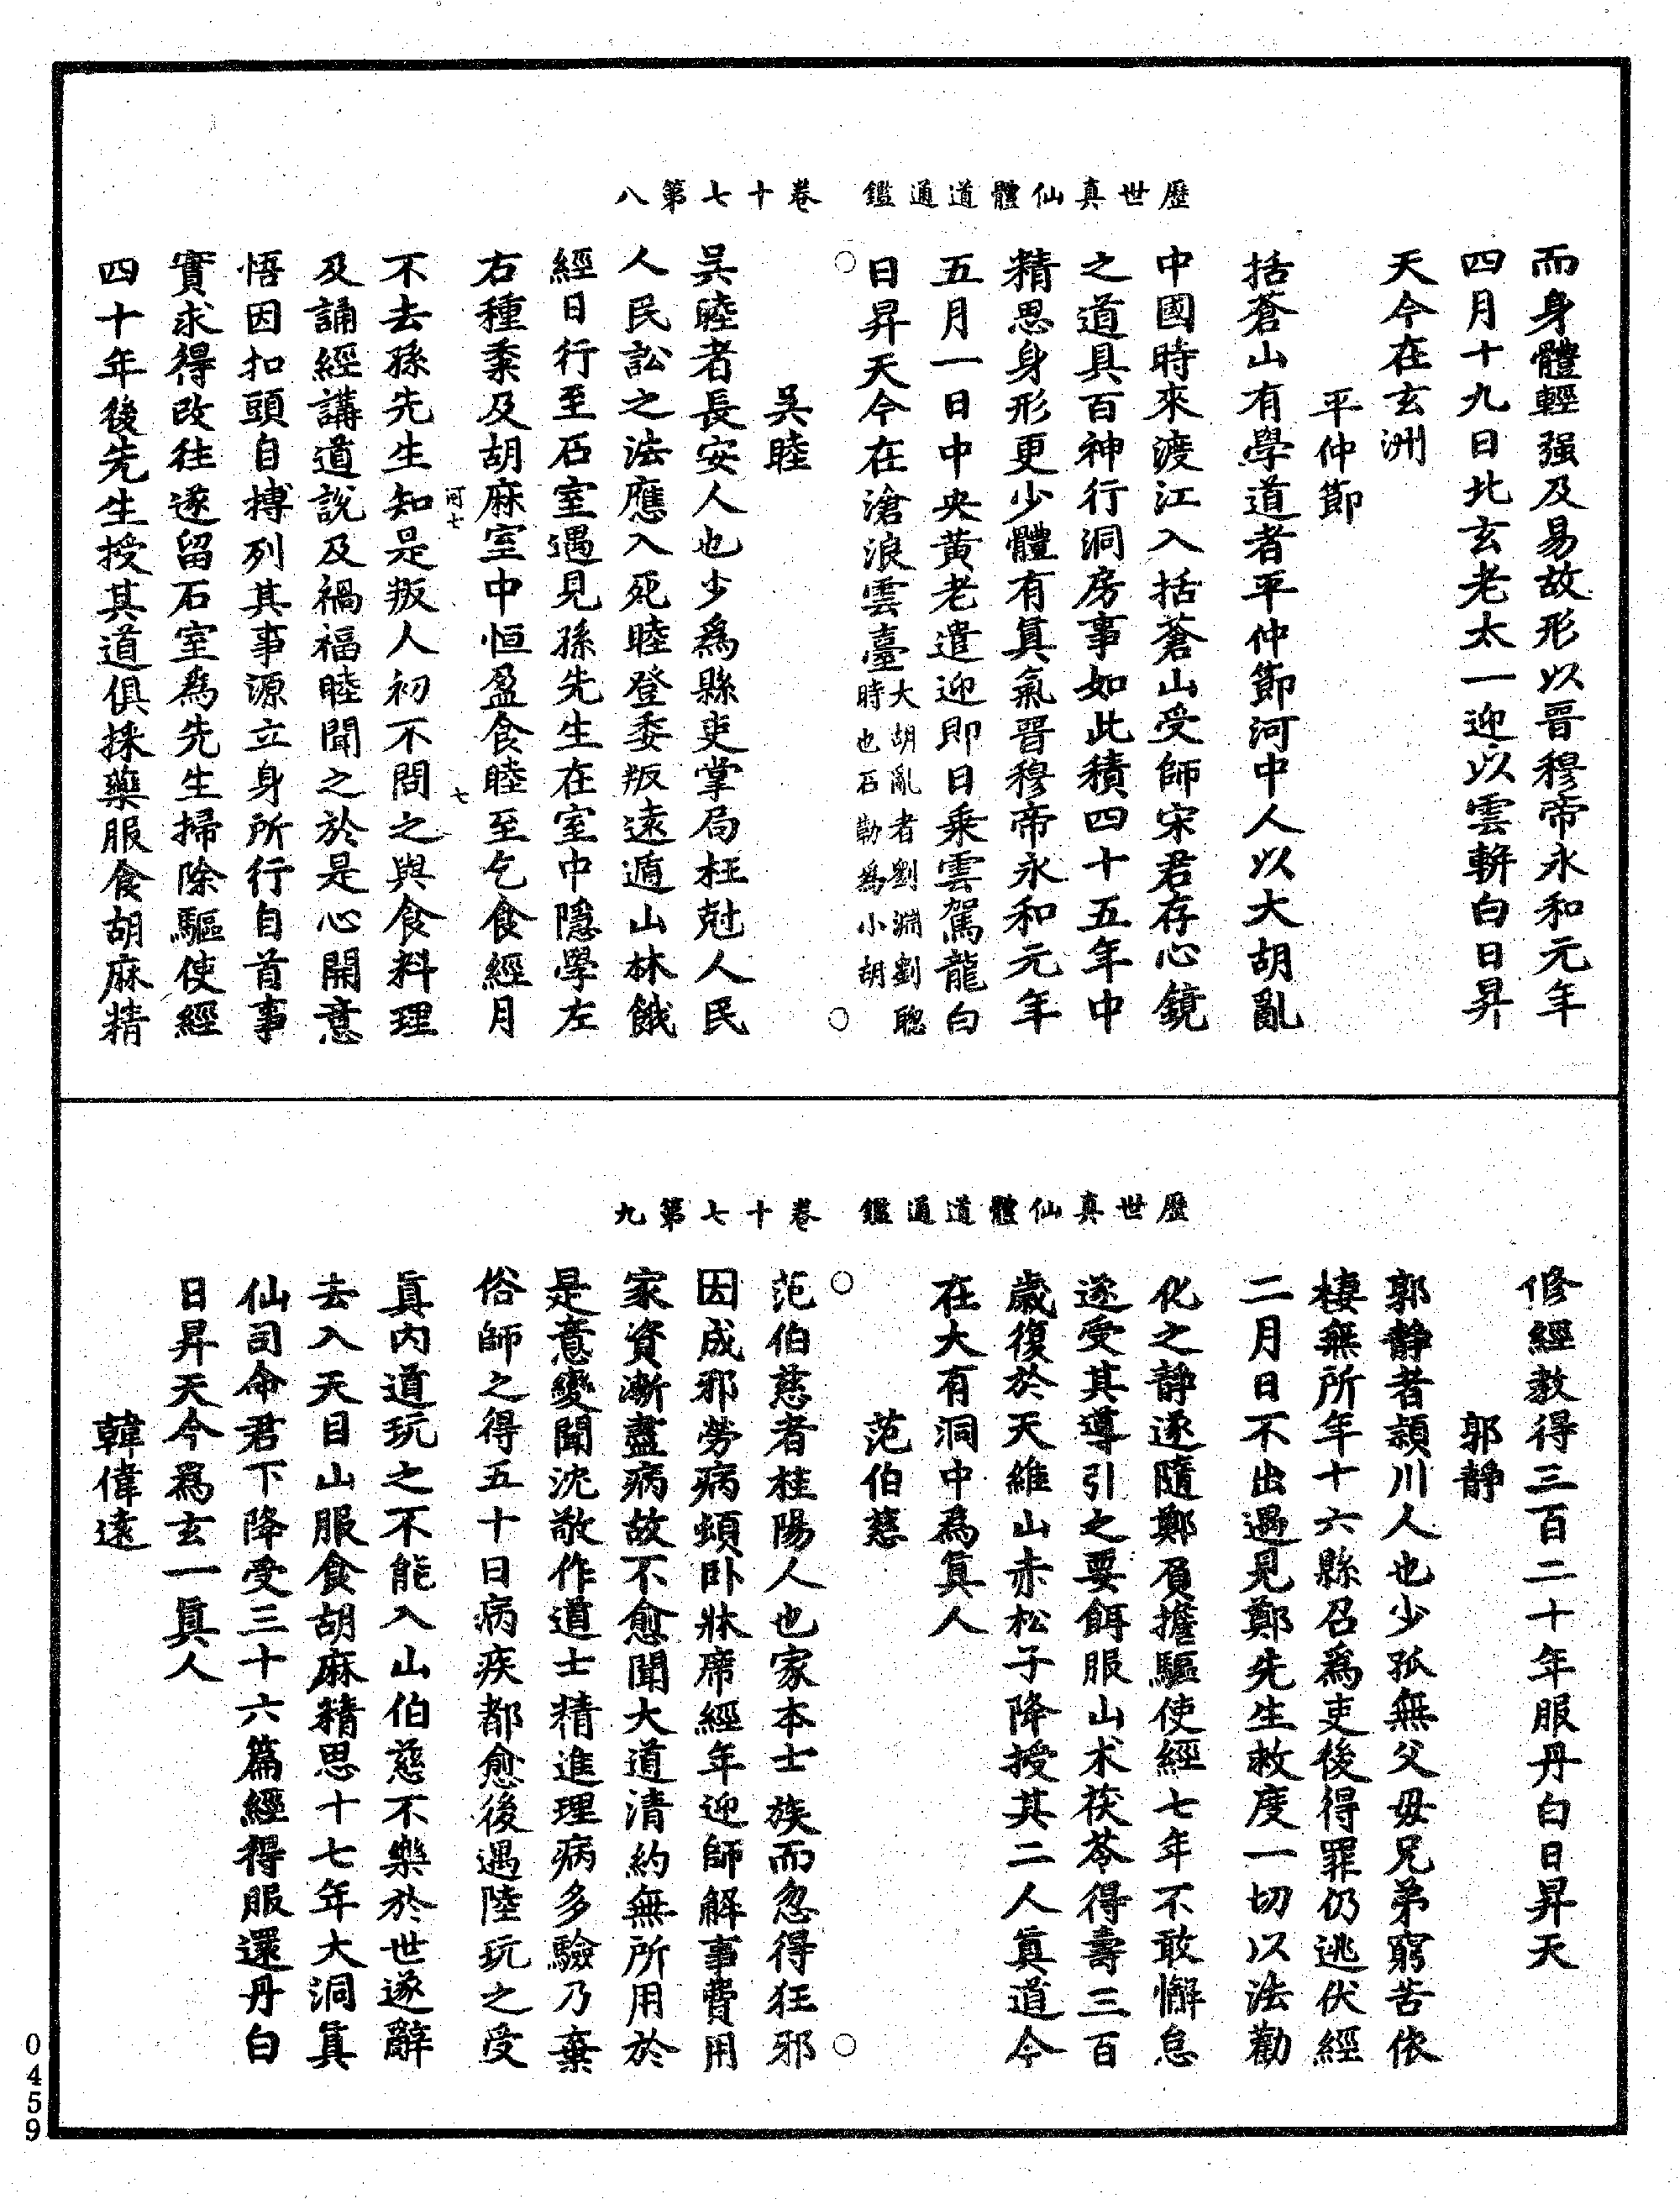 歷世真仙體道通鑑　卷十七第八
而身體輕强及易故形以晉穆帝永和元年
四月十九日北玄老太一迎以雲軿白日昇
天今在玄洲
平仲節
括蒼山有學道者平仲節河中人以大胡亂
中國時來渡江入括蒼山受師宋君存心鏡
之道具百神行洞房事如此積四十五年中
精思身形更少體有真氣晉穆帝永和元年
五月一日中央黃老遣迎即日乘雲駕龍白
日昇天今在滄浪雲臺大胡亂者劉淵劉聰
時也石勒為小胡
吳睦
吳睦者長安人也少為縣吏掌局枉尅人民
人民訟之法應入死睦登委叛遠遁山林餓
經日行至石室遇見孫先生在室中隱學左
右種黍及胡麻室中恒盈食睦至乞食經月
河七
七
不去孫先生知是叛人初不問之與食料理
及誦經講道說及禍福睦聞之於是心開意
悟因扣頭自搏列其事源立身所行自首事
實求得改往遂留石室為先生掃除驅使經
四十年後先生授其道俱採藥服食胡麻精
歷世真仙體道通鑑　卷十七第九
修經教得三百二十年服丹白日昇天
郭靜
郭靜者潁川人也少孤無父母兄弟窮苦依
棲無所年十六縣召為吏後得罪仍逃伏經
二月日不出遇見鄭先生救度一切以法勸
化之靜遂隨鄭負擔驅使經七年不敢懈怠
遂受其導引之要餌服山术茯苓得壽三百
歲復於天維山赤松子降授其二人真道今
在大有洞中為真人
范伯慈
范伯慈者桂陽人也家本士族而忽得狂邪
因成邪勞病頓卧牀席經年迎師解事費用
家資漸盡病故不愈聞大道清約無所用於
是意變聞沈敬作道士精進理病多驗乃棄
俗師之得五十日病疾都愈後遇陸玩之受
真內道玩之不能入山伯慈不樂於世遂辭
去入天目山服食胡麻精思十七年大洞真
仙司命君下降受三十六篇經得服還丹白
日昇天今為玄一真人
韓偉遠
0459